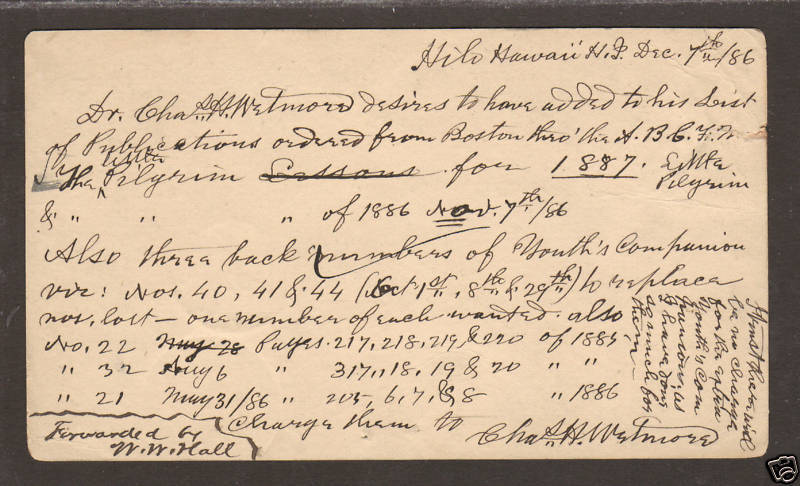 Hilo Hawaii H.I. Dec. 7th/86
Dr. Chas. H. Wetmore desires to have added to his List
of Publications ordered from Boston thro' the A.B.C.F.M.
The Little Pilgrim Lessons for 1887. Little
Pilgrim
& " " " of 1886 Nov. 7th/86
Also three back numbers of Youth's Companion
viz: Nos. 40, 41 & 44 (Oct 1st, 8th & 29th) to replace
nos. lost — one number of each wanted. also
No. 22 May 28 Pages 217, 218, 219, & 220 of 1885
" 32 Aug 6 " 317, 18, 19 & 20 " "
" 21 May 31/86 " 205, 6, 7, & 8 " 1886
Charge them to
Chas. H. Wetmore
Forwarded by
W. W. Hall
I trust there will
be no charge
for the extra
Youth's Com
panions, as
I have done
as much for
them